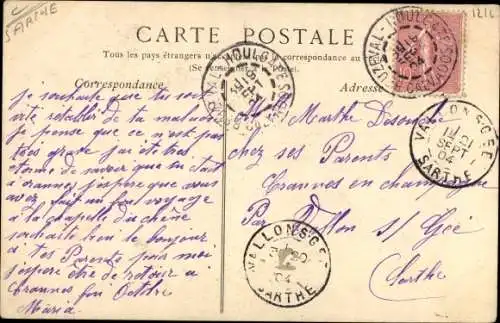 SARTHE
1212
CARTE POSTALE
Tous les pays étrangers n'acceptent pas la correspondance au
(Se renseigner
Correspondance
Adresse
je souhaite que tu sois
vite rétablie de ta maladie
je pense que ce n'est pas
très grave j'ai été très
étonné de savoir que tu étais
à Crannes j'espère que vous
avez fait un bon voyage
à la chapelle du chêne
souhaite bien le bonjour
à tes Parents pour moi
j'espère être de retour à
Crannes fin Octobre
Maria
Marthe
chez ses Parents
Crannes en champagne
Par Vallon s/ Gée
Sarthe
HOULGATE
VALLON S GEE
SARTHE
VALLON S GEE
04
SARTHE